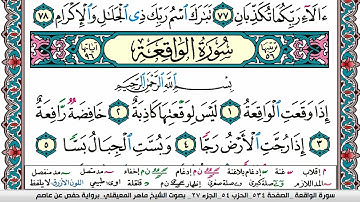 ءَالَآءِ رَبِّكُمَا تُكَذِّبَانِ ٧٧ تَبَٰرَكَ ٱسْمُ رَبِّكَ ذِى ٱلْجَلَٰلِ وَٱلْإِكْرَامِ ٧٨
سُورَةُ الوَاقِعَة
بِسْمِ ٱللَّهِ ٱلرَّحْمَٰنِ ٱلرَّحِيمِ
إِذَا وَقَعَتِ ٱلْوَاقِعَةُ ١ لَيْسَ لِوَقْعَتِهَا كَاذِبَةٌ ٢ خَافِضَةٌ رَّافِعَةٌ
٣ إِذَا رُجَّتِ ٱلْأَرْضُ رَجًّا ٤ وَبُسَّتِ ٱلْجِبَالُ بَسًّا ٥
سورة الواقعة. الصفحة ٥٣٤ الحزب ٥٤ الجزء ٢٧ بصوت الشيخ ماهر المعيقلي برواية حفص عن عاصم